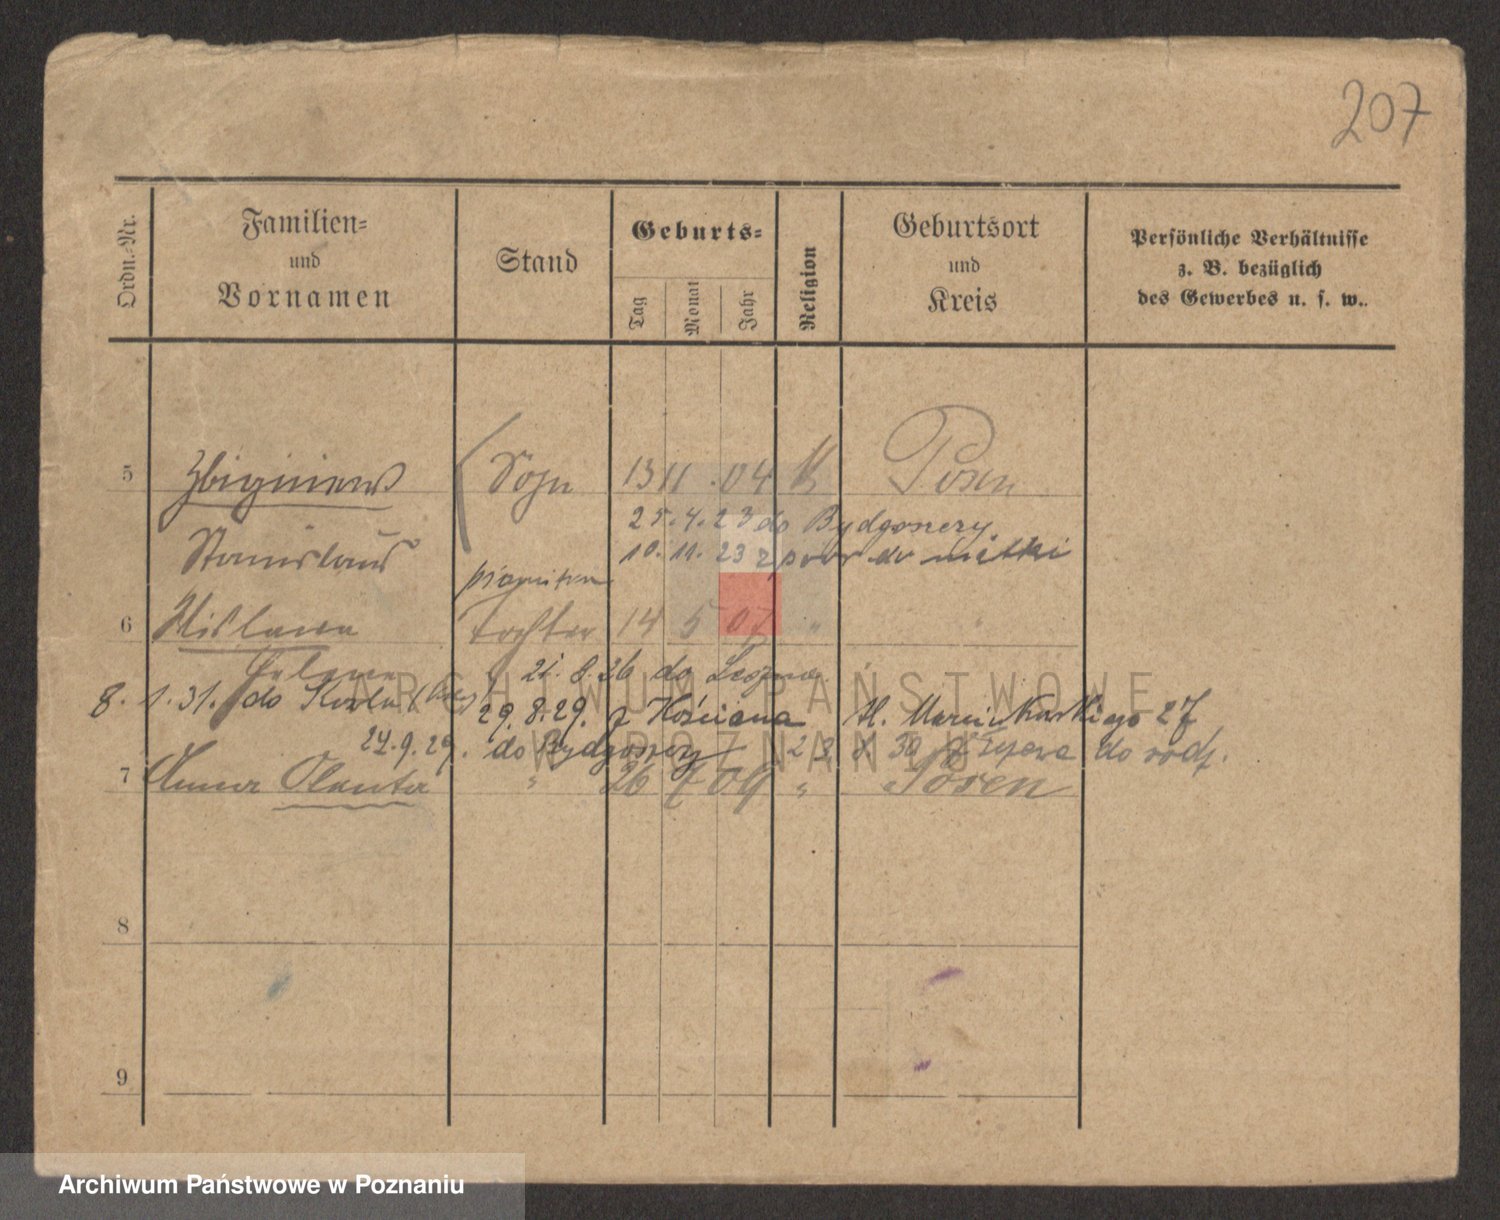 207
Ordn.-Nr.
Familien-
und
Vornamen
Stand
Geburts-
Tag
Monat
Jahr
Religion
Geburtsort
und
Kreis
Persönliche Verhältnisse
z. B. bezüglich
des Gewerbes u. s. w..
5 Zbigniew Sohn 13 11 . 04 K Posen
25. 4. 23 do Bydgoszczy
Stanislaus 10. 11. 23 z powr do matki
6 Wislawa Tochter 14 5 07 "
Helena 21. 8. 26 do Leszna
8. 1. 31. do 29. 8. 29. z Kościana Ul. Marcinkowskiego 27
24. 9. 29. do Bydgoszczy 2 3 X 30 do rodz.
7 Anna Olenta " 26 7 09 " Posen
8
9
ARCHIWUM PAŃSTWOWE
W POZNANIU
Archiwum Państwowe w Poznaniu